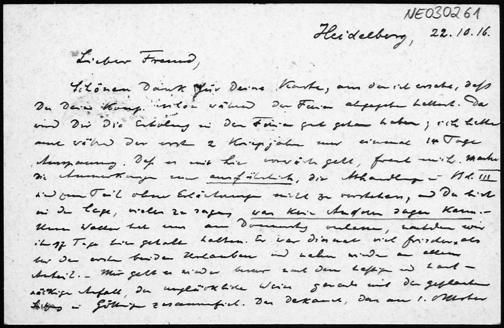 NE030261
Heidelberg, 22.10.16.
Lieber Freund,
Schönen Dank für Deine Karte, aus der ich ersehe, daß
Du Deine schon während der Ferien abgegeben hattest. Da
wird Dir die Erholung in den Ferien gut getan haben; ich hatte
während der ersten 2 Kriegsjahre nur einmal 14 Tage
Ausspannung. Daß es mit vorwärts geht, freut mich. Mache
die Anmerkungen nur ausführlich, die Abhandlungen in Bd. III
sind zum Teil ohne Erläuterungen nicht zu verstehen, und Du bist
in der Lage, vieles zu sagen, was kein Anderer sagen kann.
hat uns am Donnerstag verlassen, nachdem wir
ihn Tage hier gehabt hatten. Er war diesmal viel frischer, als
bei den ersten beiden Urlauben und nahm wieder an allem
Anteil. – Mir geht es wieder besser nach dem heftigen und hart-
näckigen Anfall, der unglücklicher Weise gerade mit der geplanten
in Göttingen zusammenfiel. Der Dekanat, das am 1. Oktober